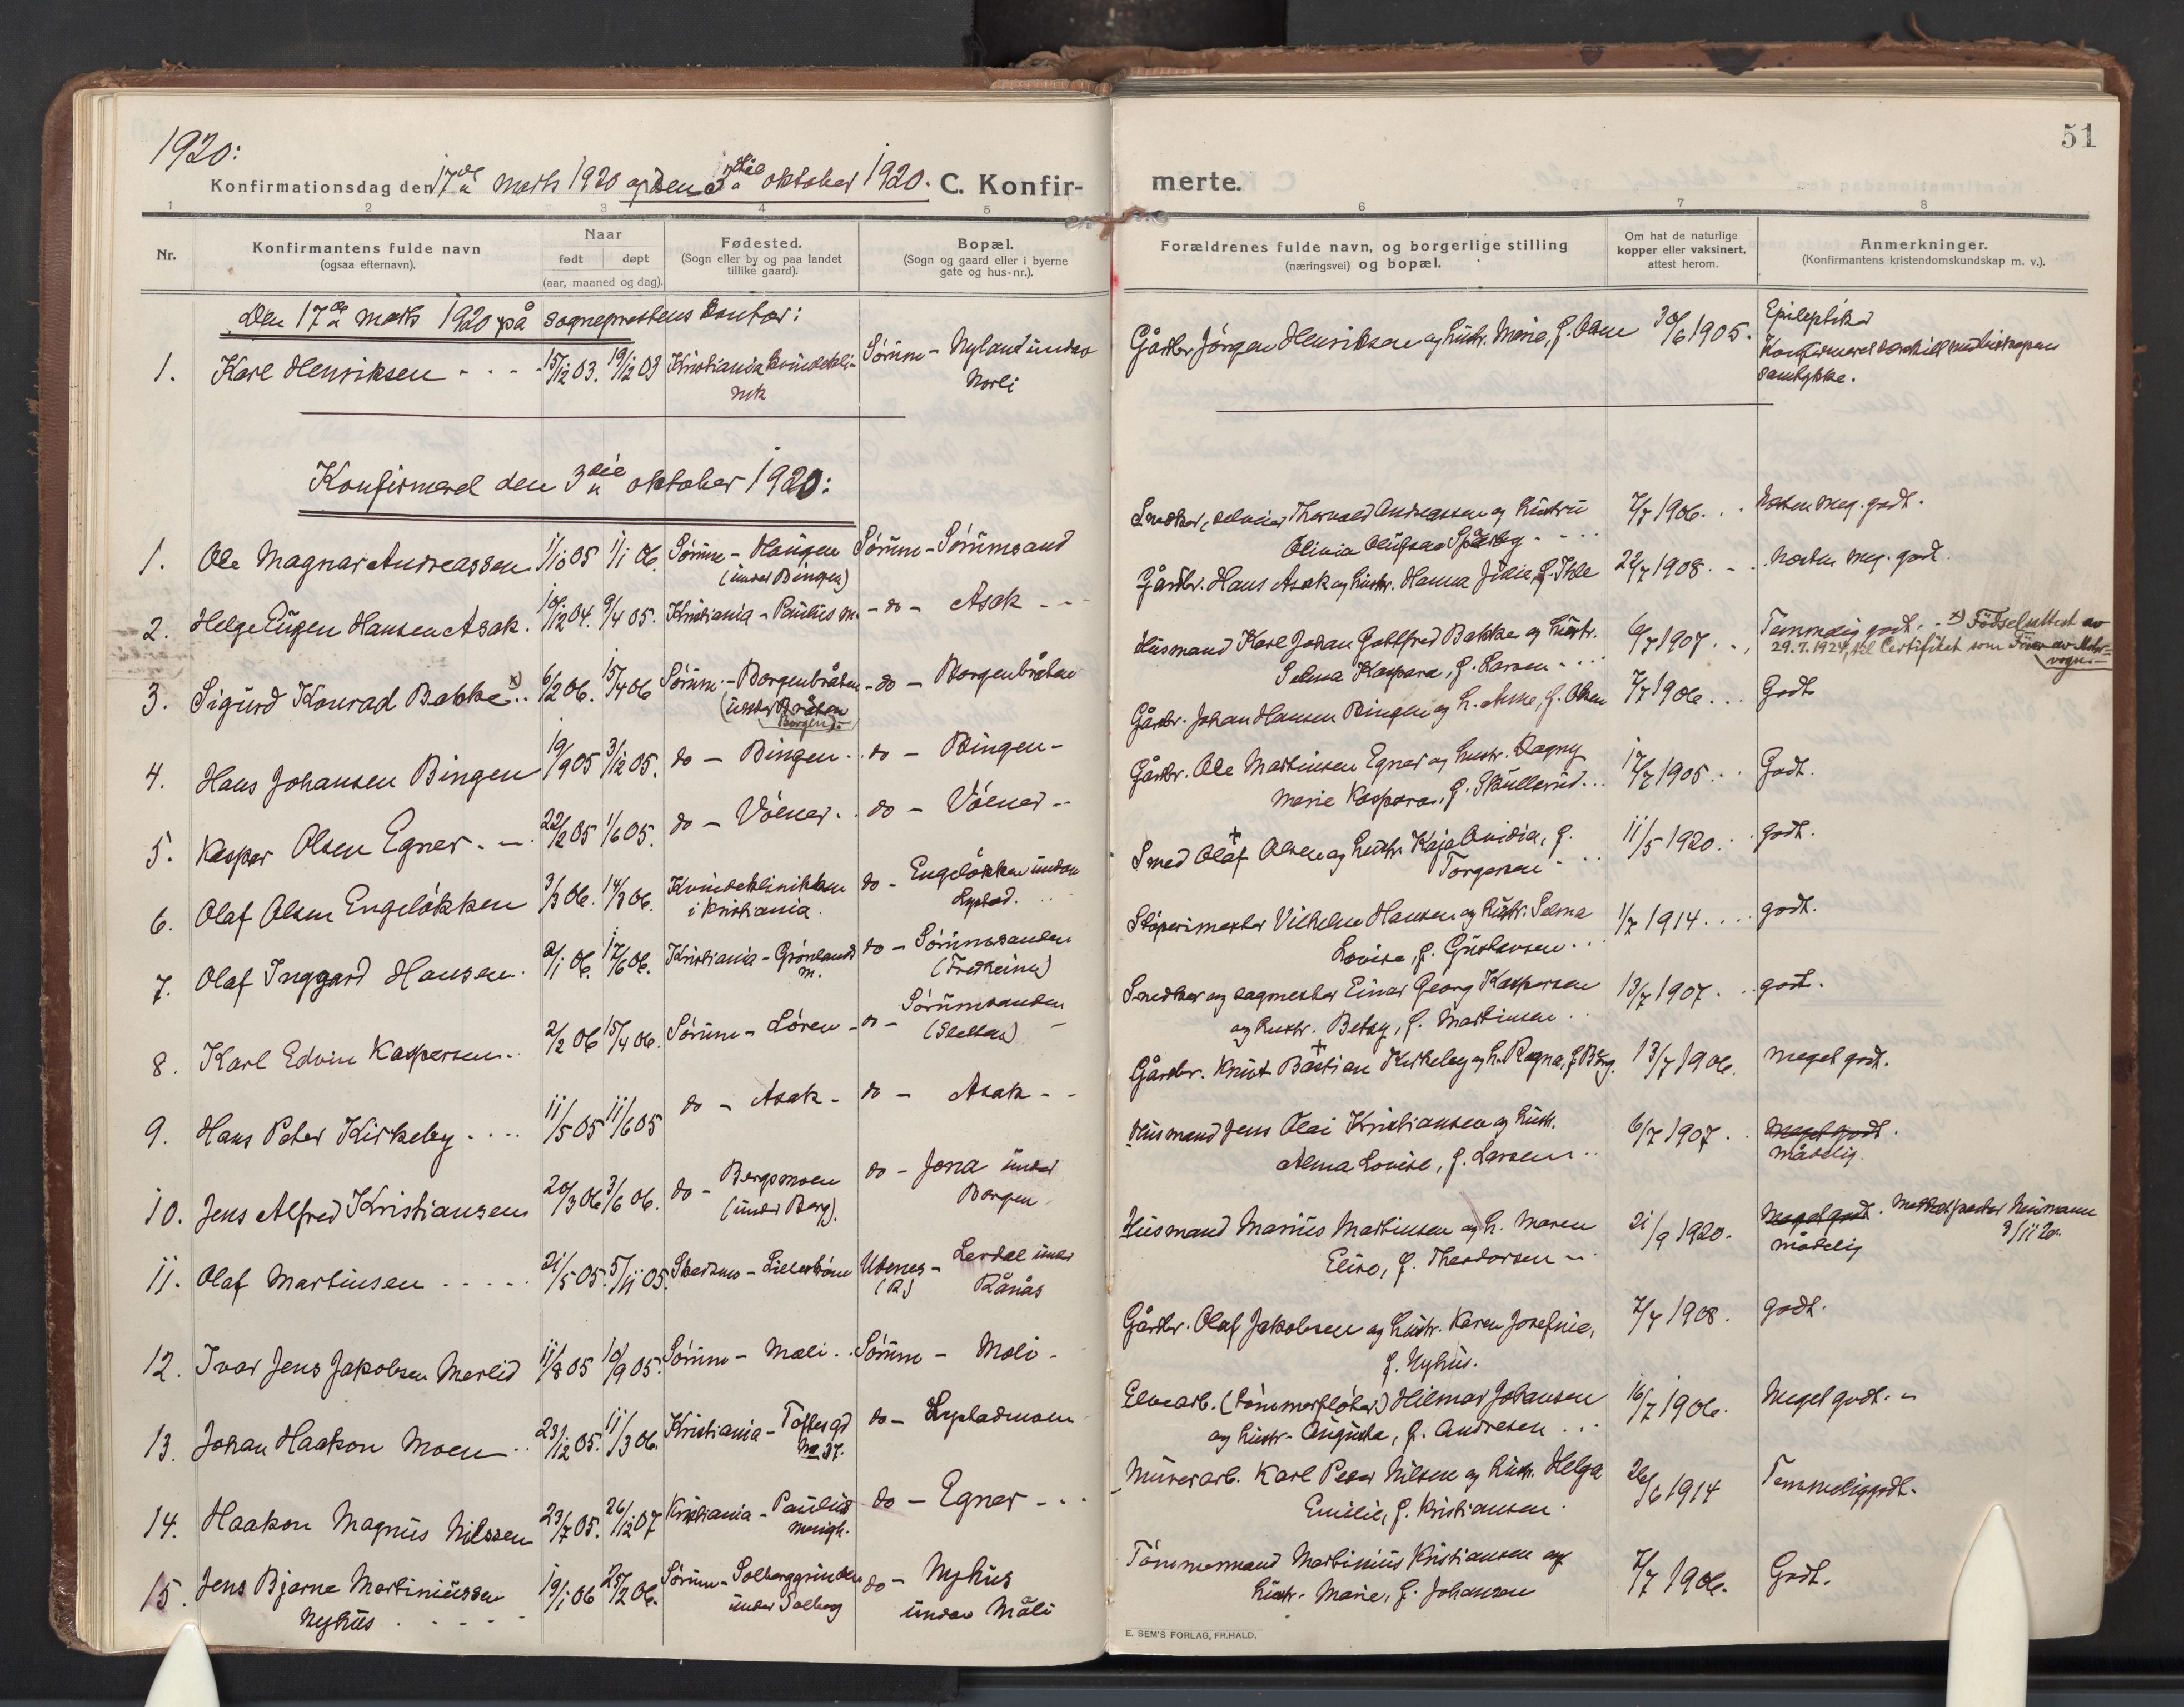 1920:
51
Konfirmationsdag den 17de marts 1920 og den 3die oktober 1920. C. Konfir- merte.
1 2 3 4 5 6 7 8
Nr.
Konfirmantens fulde navn
(ogsaa efternavn).
Naar
født døpt
(aar, maaned og dag).
Fødested.
(Sogn eller by og paa landet
tillike gaard).
Bopæl.
(Sogn og gaard eller i byerne
gate og hus-nr.).
Forældrenes fulde navn, og borgerlige stilling
(næringsvei) og bopæl.
Om hat de naturlige
kopper eller vaksinert,
attest herom.
Anmerkninger.
(Konfirmantens kristendomskundskap m. v.).
Den 17de marts 1920 på sogneprestens kontor:
1. Karl Henriksen 15/12 03. 19/12 03 Kristiania Kvindekli- Sørum - Nyland under Gårdbr. Jörgen Henriksen og hustr. Marie, f. Olsen 30/6 1905. Epileptiker
nik Norli Konfirmeret særskilt med biskopens
samtykke.
Konfirmerel den 3die oktober 1920:
1. Ole Magnar Andreassen 1/10 05 1/1 06. Sörum - Haugen Sörum - Sörumsand Snedker, Thorvald Andreassen og hustru 7/7 1906. Noksen meg. godt.
(under Bingen) Olivia Olufsen
2. Helge Eugen Hansen Asak. 10/12 04. 9/4 05. Kristiania - Paulus m. - do - Asak Gårdbr. Hans Asak og hustr. Hanna Julie, f. Ihle 22/7 1908. Noksen meg. godt.
3. Sigurd Konrad Bakke x) 6/2 06. 15/4 06 Sörum - Borgenbråten - do - Borgenbråten Husmand Karl Johan Gottfred Bakke og hustr. 6/7 1907. Temmelig godt. - x) Fødselsattest av
(under Bråten Selma Kaspara, f. Larsen 29.7.1924, til Certifikat som Förer av Motor-
Borgen). vogn.
4. Hans Johansen Bingen 19/9 05 3/12 05. do - Bingen. do - Bingen - Gårdbr. Johan Hansen Bingen og h. Anne, f. Olsen 7/7 1906. Godt
5. Kasper Olsen Egner. 22/2 05 1/6 05. do - Völner. do - Völner Gårdbr. Ole Martinsen Egner og hustr. Dagny 17/7 1905. Godt.
Marie Kaspara, f. Skullerud.
6. Olaf Olsen Engelökken 3/3 06. 14/3 06. Kvindeklinikken do - Engelökken under Smed Olaf + Olsen og hustr. Kaja Ovidia, f. 11/5 1920. godt.
i Kristiania. Lystad. Torgersen
7. Olaf Inggard Hansen. 2/1 06. 17/6 06. Kristiania - Grönlands do - Sörumsanden Stöperimester Vilhelm Hansen og hustr. Selma 1/7 1914. godt.
m. (Fredheim) Lovise, f. Gustavsen.
8. Karl Edvin Kaspersen. 2/2 06 15/4 06. Sörum - Lören - do - Sörumsanden Snedker og sagmester Einar Georg Kaspersen 13/7 1907. godt.
(Sletten) og hustr. Betsy, f. Martinsen
9. Hans Peter Kirkeby 11/5 05 11/6 05 do - Asak - do - Asak - Gårdbr. Knut Bastian + Kirkeby og h. Ragna, f. Berg. 13/7 1906. Meget godt.
10. Jens Alfred Kristiansen 20/3 06 3/6 06. do - Borgsmoen do - Jona under Husmand Jens Olai Kristiansen og hustr. 6/7 1907. Meget godt.
(under Berg). Borgen Alma Lovise, f. Larsen måtelig.
11. Olaf Martinsen 21/5 05. 5/11 05. Skedsmo - Lilleström Udenes - Lerdal under Husmand Marius Martinsen og h. Maren 21/9 1920. Meget godt. Neumann
(R) Rånås Elise, f. Theodorsen 9/11 20. måtelig
12. Ivar Jens Jakobsen Merlid 11/8 05 10/9 05. Sörum - Mæli. Sörum - Mæli - Gårdbr. Olaf Jakobsen og hustr. Karen Josefine, 7/7 1908. godt.
f. Nyhus.
13. Johan Haakon Moen 23/12 05. 11/3 06. Kristiania - Toftesgd do - Lystadmoen Elvearb. (tömmerflöter) Hilmar Johansen 16/7 1906. Meget godt.
No 37. og hustr. Augusta, f. Andresen
14. Haakon Magnus Nilssen 23/7 05. 26/12 07 Kristiania - Paulus do - Egner Murerarb. Karl Peder Nilsen og hustr. Helga 26/6 1914 Temmelig godt.
menigh. Emilie, f. Kristiansen.
15. Jens Bjarne Martiniussen 19/1 06 25/2 06. Sörum - Solberggrinden do - Nyhus Tömmermand Martinius Kristiansen og 7/7 1906. Godt.
Nyhus under Solberg under Mæli hustr. Marie, f. Johansen
E. SEM'S FORLAG, FR.HALD.